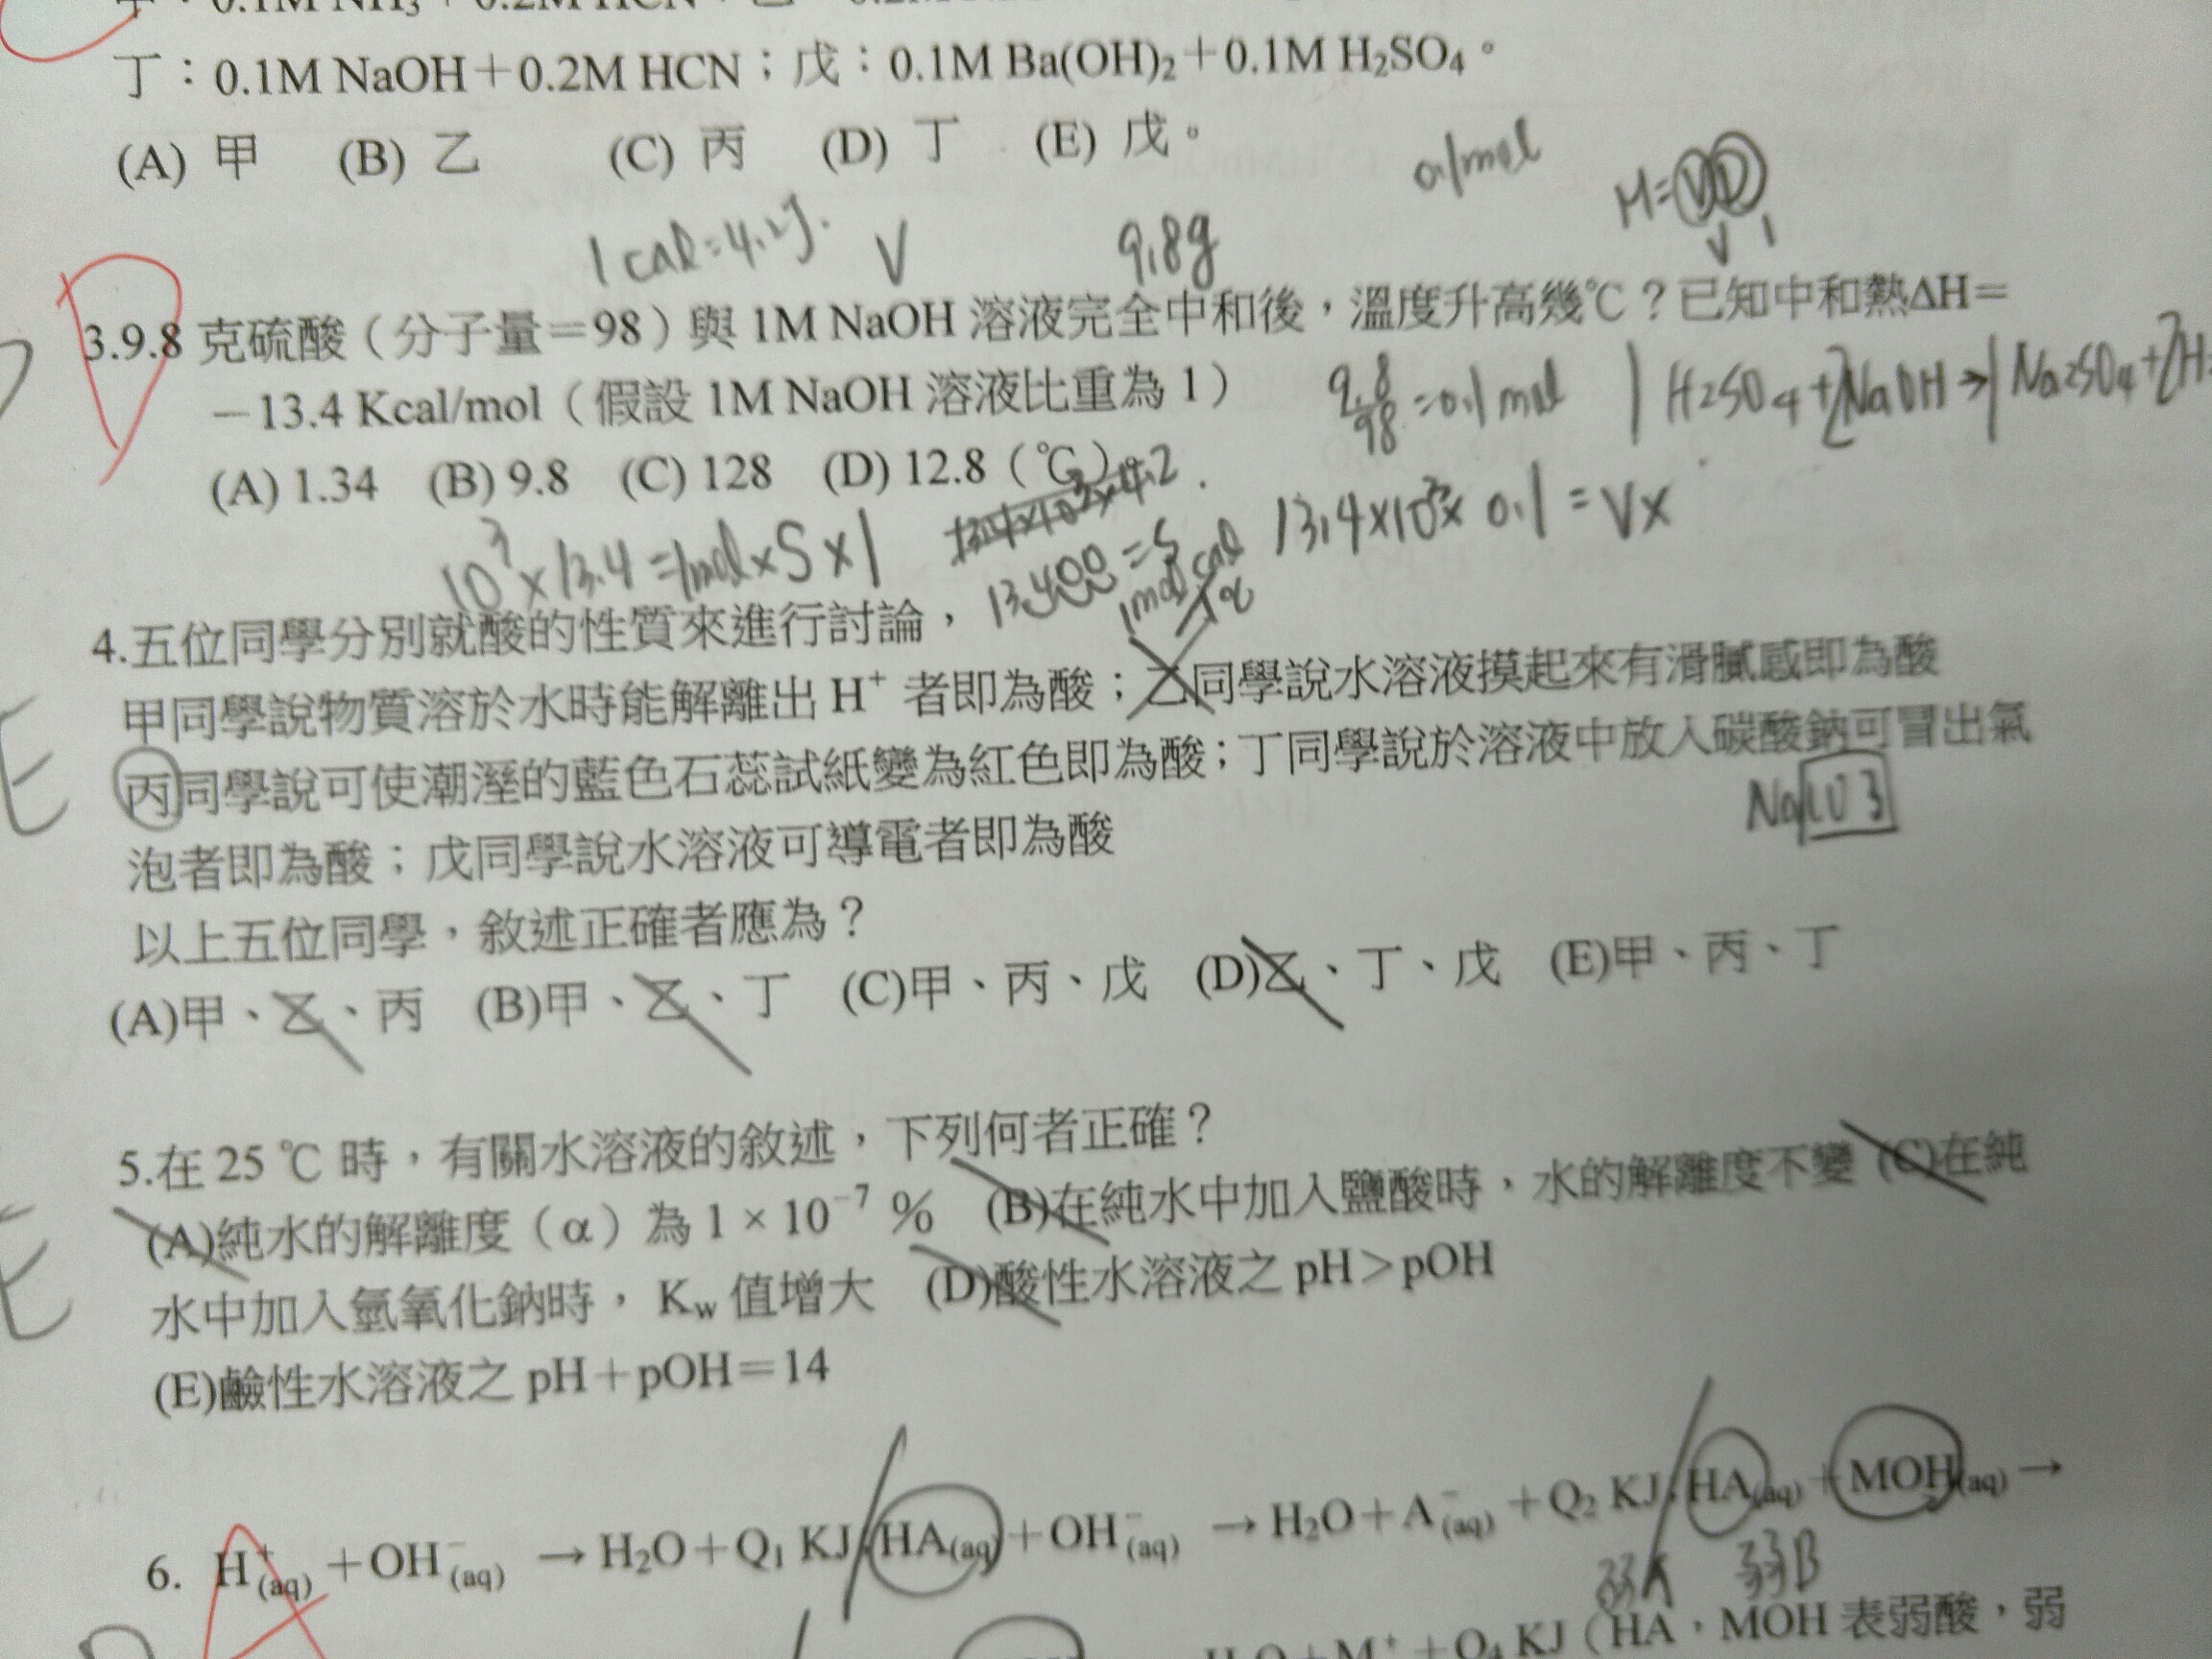 丁：0.1M NaOH＋0.2M HCN；戊：0.1M Ba(OH)₂＋0.1M H₂SO₄。
(A) 甲 (B) 乙 (C) 丙 (D) 丁 (E) 戊。
0.1mol
M=VD
V 1
1 cal=4.2J. V 9.8g
D
3.9.8 克硫酸（分子量＝98）與 1M NaOH 溶液完全中和後，溫度升高幾℃？已知中和熱ΔH＝
－13.4 Kcal/mol（假設 1M NaOH 溶液比重為 1）
9.8/98 =0.1 mol 1 H2SO4+2NaOH→1Na2SO4+2H
(A) 1.34 (B) 9.8 (C) 128 (D) 12.8（℃）。
10³×13.4=1mol×S×1
13.4×10³×0.1=Vx
4.五位同學分別就酸的性質來進行討論，
甲同學說物質溶於水時能解離出 H⁺ 者即為酸；乙同學說水溶液摸起來有滑膩感即為酸
E
丙同學說可使潮溼的藍色石蕊試紙變為紅色即為酸；丁同學說於溶液中放入碳酸鈉可冒出氣
泡者即為酸；戊同學說水溶液可導電者即為酸
以上五位同學，敘述正確者應為？
(A)甲、乙、丙 (B)甲、乙、丁 (C)甲、丙、戊 (D)乙、丁、戊 (E)甲、丙、丁
5.在 25 ℃ 時，有關水溶液的敘述，下列何者正確？
(A)純水的解離度（α）為 1 × 10⁻⁷ % (B)在純水中加入鹽酸時，水的解離度不變 (C)在純
E
水中加入氫氧化鈉時， Kw 值增大 (D)酸性水溶液之 pH＞pOH
(E)鹼性水溶液之 pH＋pOH＝14
6. H⁺(aq) ＋OH⁻(aq) →H₂O＋Q₁ KJ;HA(aq)＋OH⁻(aq) →H₂O＋A⁻(aq) ＋Q₂ KJ;HA(aq)＋MOH(aq)→
弱A 弱B
A
H₂O＋M⁺ ＋Q₄ KJ（HA，MOH 表弱酸，弱